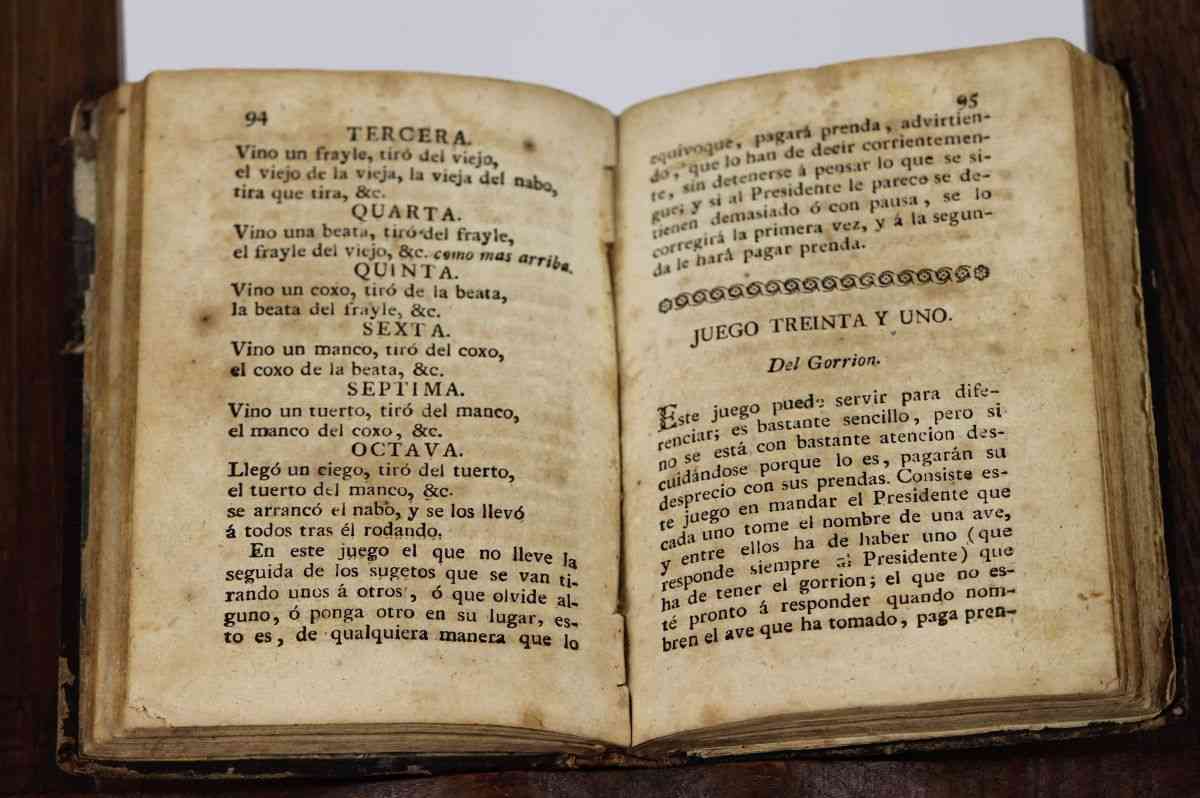 94
TERCERA.
Vino un frayle, tiró del viejo,
el viejo de la vieja, la vieja del nabo,
tira que tira, &c.
QUARTA.
Vino una beata, tiró del frayle,
el frayle del viejo, &c. como mas arriba.
QUINTA.
Vino un coxo, tiró de la beata,
la beata del frayle, &c.
SEXTA.
Vino un manco, tiró del coxo,
el coxo de la beata, &c.
SEPTIMA.
Vino un tuerto, tiró del manco,
el manco del coxo, &c.
OCTAVA.
Llegó un ciego, tiró del tuerto,
el tuerto del manco, &c.
se arrancó el nabo, y se los llevó
á todos tras él rodando.
En este juego el que no lleve la
seguida de los sugetos que se van ti-
rando unos á otros, ó que olvide al-
guno, ó ponga otro en su lugar, es-
to es, de qualquiera manera que lo
95
equivoque, pagará prenda, advirtien-
do, que lo han de decir corrientemen-
te, sin detenerse á pensar lo que se si-
gue; y si al Presidente le pareco se de-
tienen demasiado ó con pausa, se lo
corregirá la primera vez, y á la segun-
da le hará pagar prenda.
JUEGO TREINTA Y UNO.
Del Gorrion.
Este juego puede servir para dife-
renciar; es bastante sencillo, pero si
no se está con bastante atencion des-
cuidándose porque lo es, pagarán su
desprecio con sus prendas. Consiste es-
te juego en mandar el Presidente que
cada uno tome el nombre de una ave,
y entre ellos ha de haber uno (que
responde siempre al Presidente) que
ha de tener el gorrion; el que no es-
té pronto á responder quando nom-
bren el ave que ha tomado, paga pren-